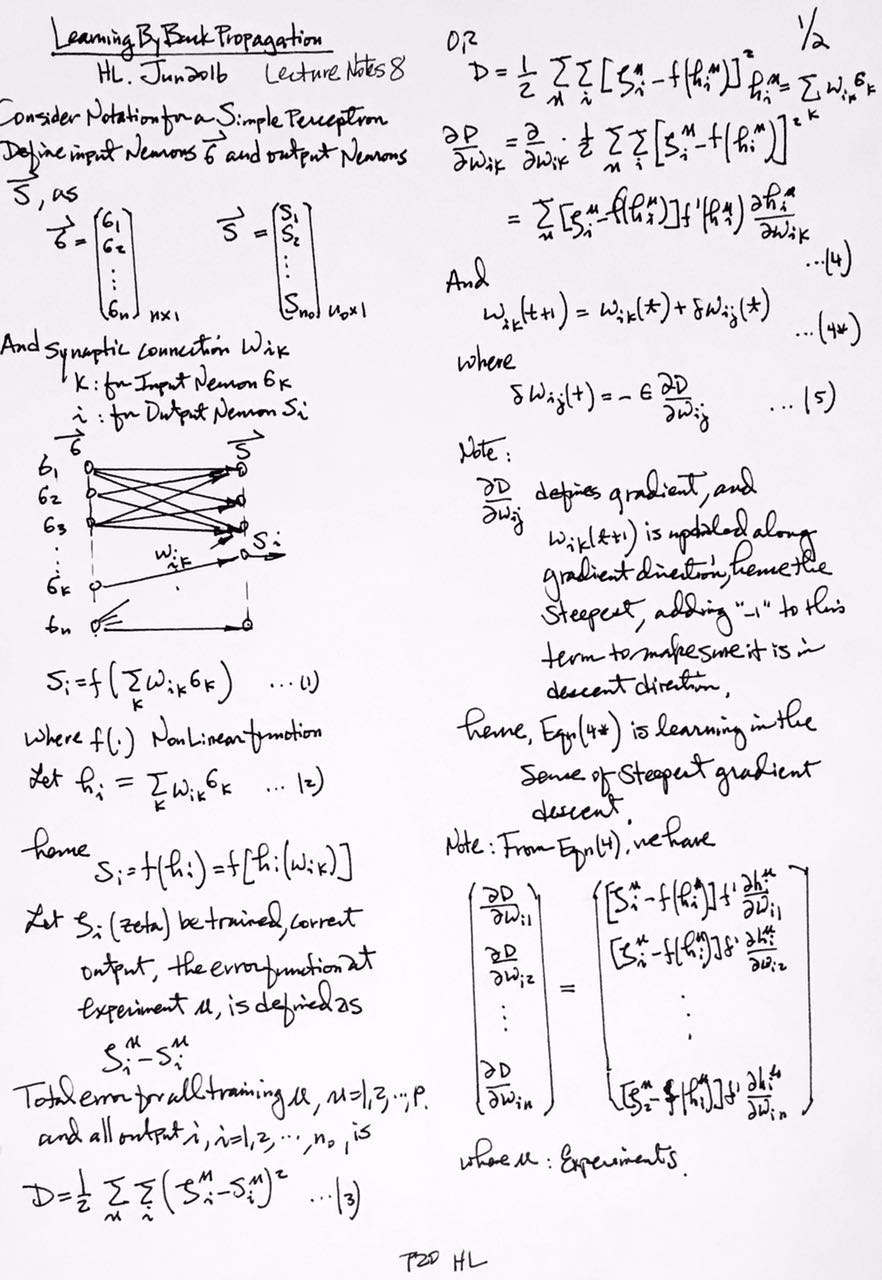 Learning By Back Propagation
HL. Jun 2016 Lecture Notes 8
Consider Notation for a Simple Perceptron
Define input Neurons σ⃗ and output Neurons
S⃗, as
σ⃗ = (σ1 σ2 ⋮ σn) n×1 S⃗ = (S1 S2 ⋮ Sn0) n0×1
And Synaptic Connection Wik
k: for Input Neuron σk
i : for Output Neuron Si
σ⃗ S⃗
σ1
σ2
σ3
⋮
wik Si
σk
σn
Si = f(∑k wik σk) ...(1)
where f(.) NonLinear function
Let hi = ∑k wik σk ... (2)
hence
Si = f(hi) = f[hi(wik)]
Let ζi (zeta) be trained, correct
output, the error function at
experiment μ, is defined as
ζi^μ − Si^μ
Total error for all training μ, μ=1,2,...,p.
and all output i, i=1,2,...,n0, is
D = 1/2 ∑μ ∑i (ζi^μ − Si^μ)^2 ...(3)
1/2
OR
D = 1/2 ∑μ ∑i [ζi^μ − f(hi^μ)]^2 hi^μ = ∑k wik σk
∂D/∂wik = ∂/∂wik · 1/2 ∑μ ∑i [ζi^μ − f(hi^μ)]^2
= ∑μ [ζi^μ − f(hi^μ)] f'(hi^μ) ∂hi^μ/∂wik
...(4)
And
wik(t+1) = wik(t) + δwij(t)
...(4*)
where
δwij(t) = −ϵ ∂D/∂wij ... (5)
Note:
∂D/∂wij defines gradient, and
wik(t+1) is updated along
gradient direction, hence the
Steepest, adding "-1" to this
term to make sure it is in
descent direction,
hence, Eqn(4*) is learning in the
Sense of Steepest gradient
descent.
Note: From Eqn(4), we have
(∂D/∂wi1) ([ζi^μ − f(hi^μ)] f' ∂hi^μ/∂wi1)
(∂D/∂wi2) = ([ζi^μ − f(hi^μ)] f' ∂hi^μ/∂wi2)
⋮ ⋮
(∂D/∂win) ([ζi^μ − f(hi^μ)] f' ∂hi^μ/∂win)
where μ : Experiments.
HL